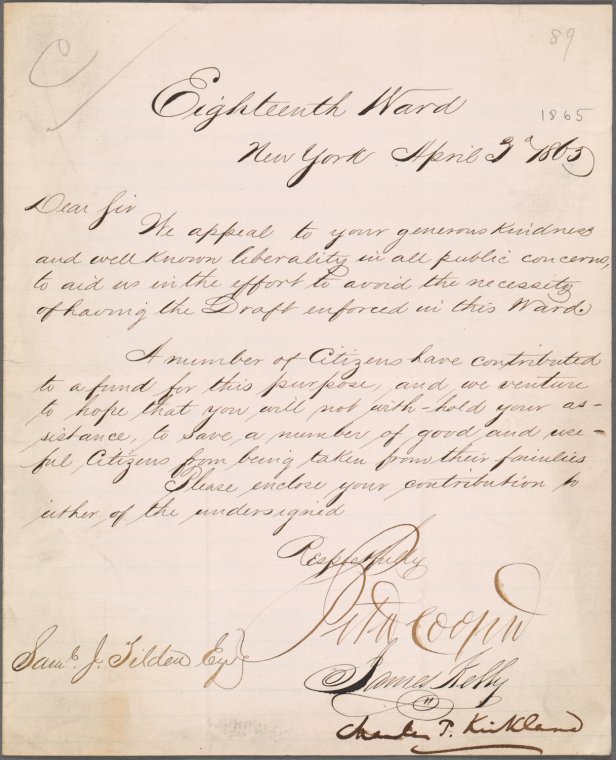 89
1865
Eighteenth Ward
New York April 3d 1865
Dear Sir
We appeal to your generous kindness
and well known liberality in all public concerns,
to aid us in the effort to avoid the necessity
of having the Draft enforced in this Ward.
A number of Citizens have contributed
to a fund for this purpose, and we venture
to hope that you will not with-hold your as-
sistance, to save a number of good and use-
ful Citizens from being taken from their families
Please enclose your contribution to
either of the undersigned
Respectfully
Peter Cooper
Saml. J. Tilden Esq
James Kelly
Charles P. Kirkland